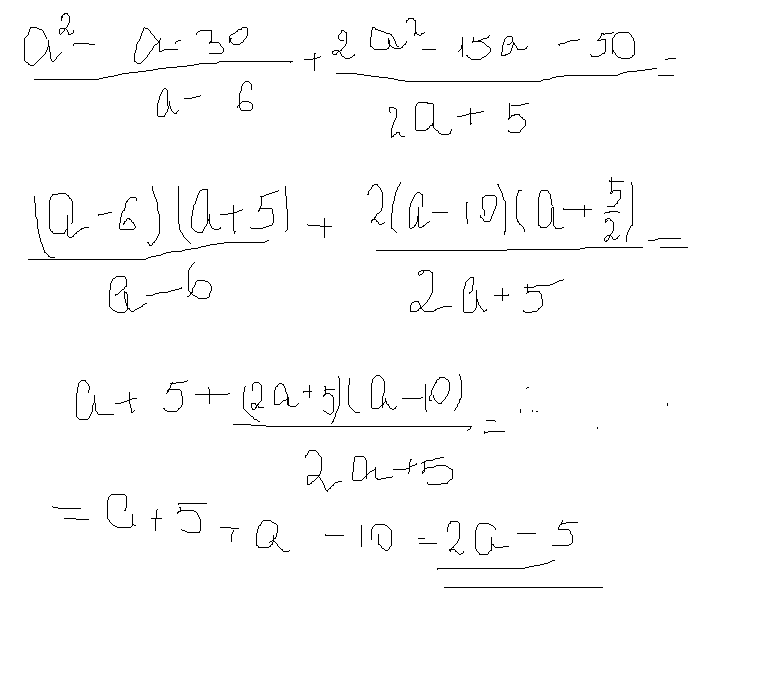 a² - a - 30 / a - 6 + 2a² - 15a - 50 / 2a + 5 =
(a - 6)(a + 5) / a - 6 + 2(a - 10)(a + 5/2) / 2a + 5 =
a + 5 + (2a + 5)(a - 10) / 2a + 5 = ...
= a + 5 + a - 10 = 2a - 5